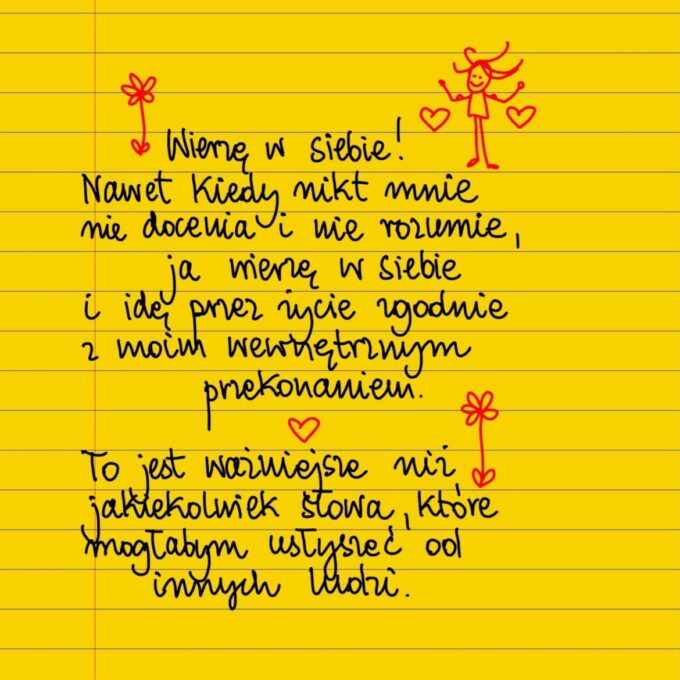 Wierzę w siebie!
Nawet kiedy nikt mnie
nie docenia i nie rozumie,
ja wierzę w siebie
i idę przez życie zgodnie
z moim wewnętrznym
przekonaniem.
To jest ważniejsze niż
jakiekolwiek słowa, które
mogłabym usłyszeć od
innych ludzi.